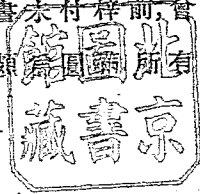 書未付梓前,會
所有
北京
圖書
館藏